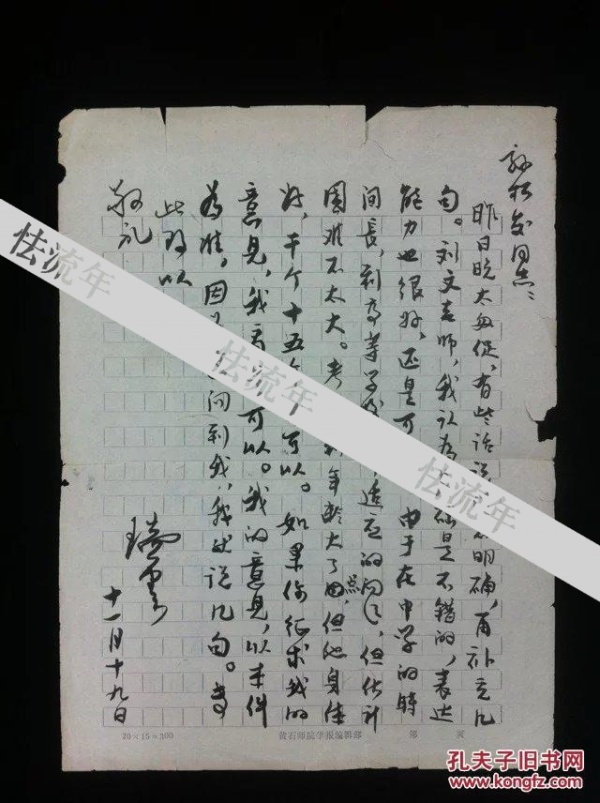 同志：
昨日晚太匆促，有些话说 不明确，再补充几
句。刘文 老师，我认为 础是不错的，表达
能力也很好，还是可 由于在中学的时
间长，到高等学 适应的 ，但估计
困难不太大。考 到年龄大了 点，但他身体
好，干个十五 年 可以。如果你征求我的
意见，我 可以。我的意见，以来件
为准，因 问到我，我就说几句。
此致以
敬礼
瑞
十一月十九日
20×15＝300 黄石师院学报编辑部
怯流年
怯流年
怯流年
怯流年
孔夫子旧书网
www.kongfz.com